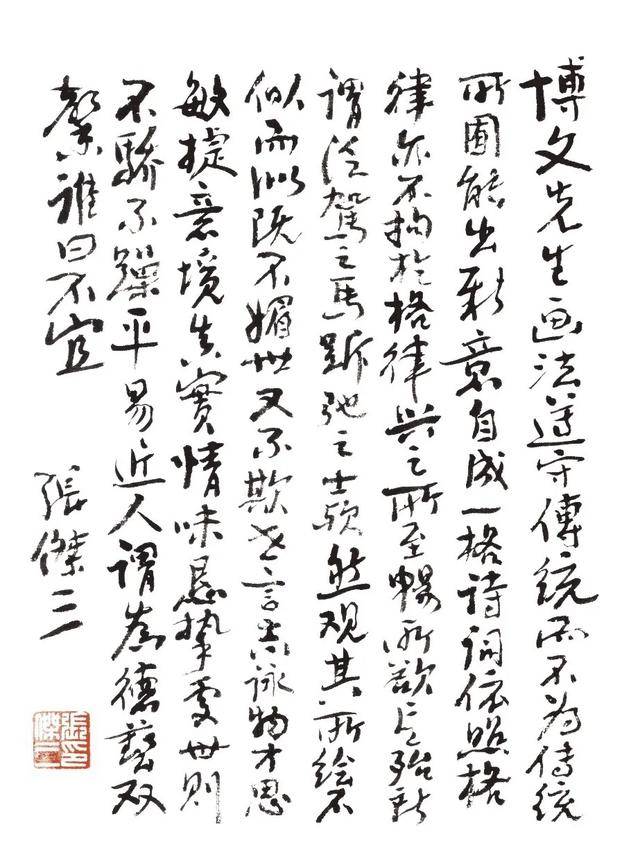 博文先生画法遵守傳統而不为传统
所囿能出新意自成一格诗词依照格
律亦不拘於格律興之所至暢所欲言殆所
谓泛駕之馬跅弛之士歟然观其所绘不
似而似既不媚世又不欺世言志詠物才思
敏捷意境真實情味懇挚處世则
不驕不躁平易近人謂為德藝双
馨谁曰不宜
張傑三
張傑三印